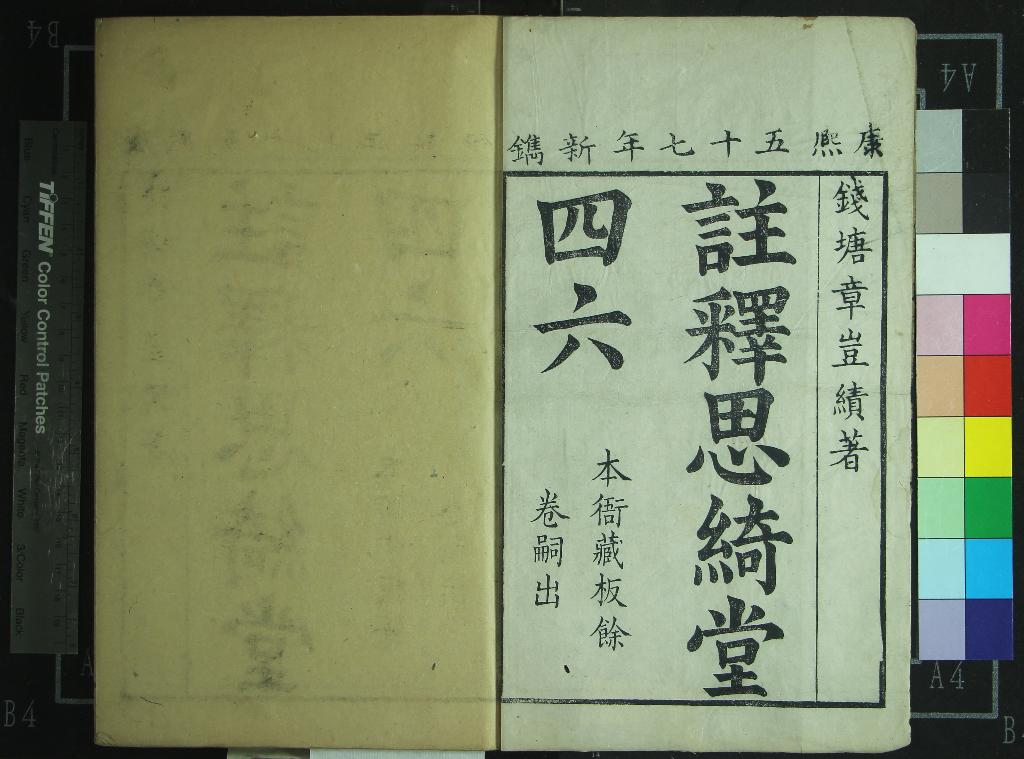 康熙五十七年新鐫
錢塘章豈績著
註釋思綺堂
四六
本衙藏板餘
卷嗣出
TIFFEN Color Control Patches
Blue
Cyan
Green
Yellow
Red
Magenta
White
3/Color
Black
B4
A4
A4
B4